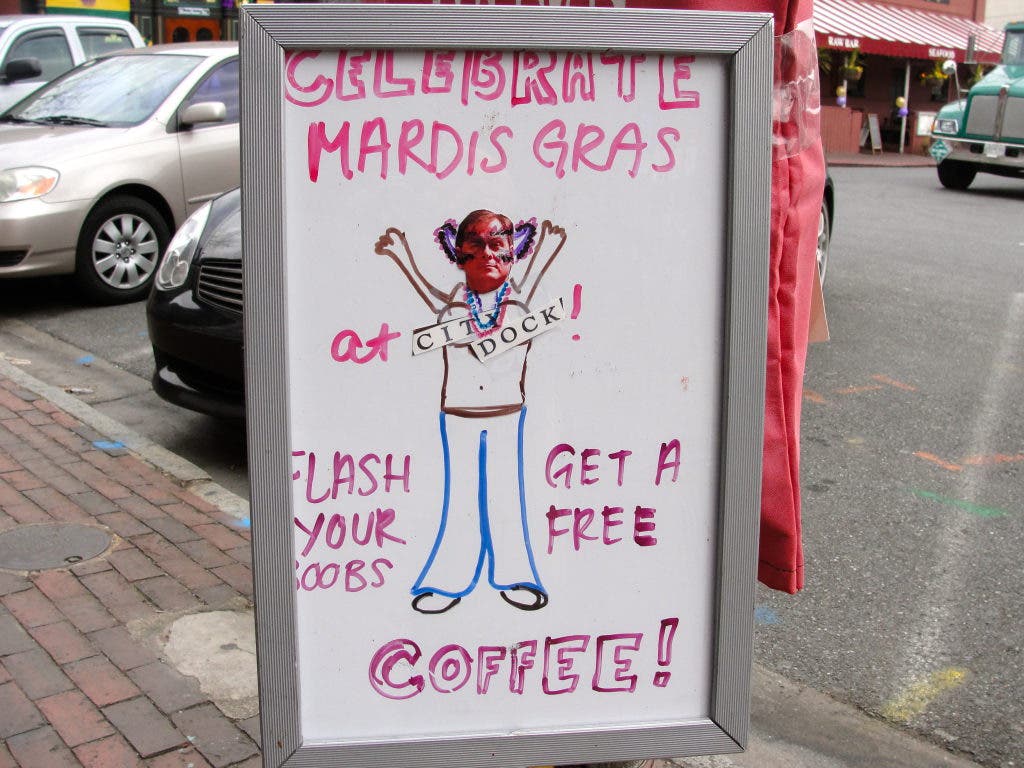 CELEBRATE
MARDIS GRAS
at CITY DOCK!!
FLASH
YOUR
BOOBS
GET A
FREE
COFFEE!
RAW BAR
SEAFOOD